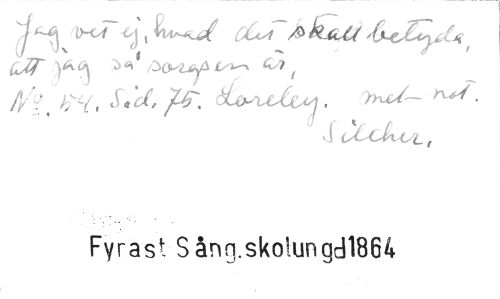 Jag vet ej, hvad det skall betyda,
att jag så sorgsen är,
No. 54. Sid. 75. Loreley. met-not.
Silcher.
Fyrast Sång.skolungd1864